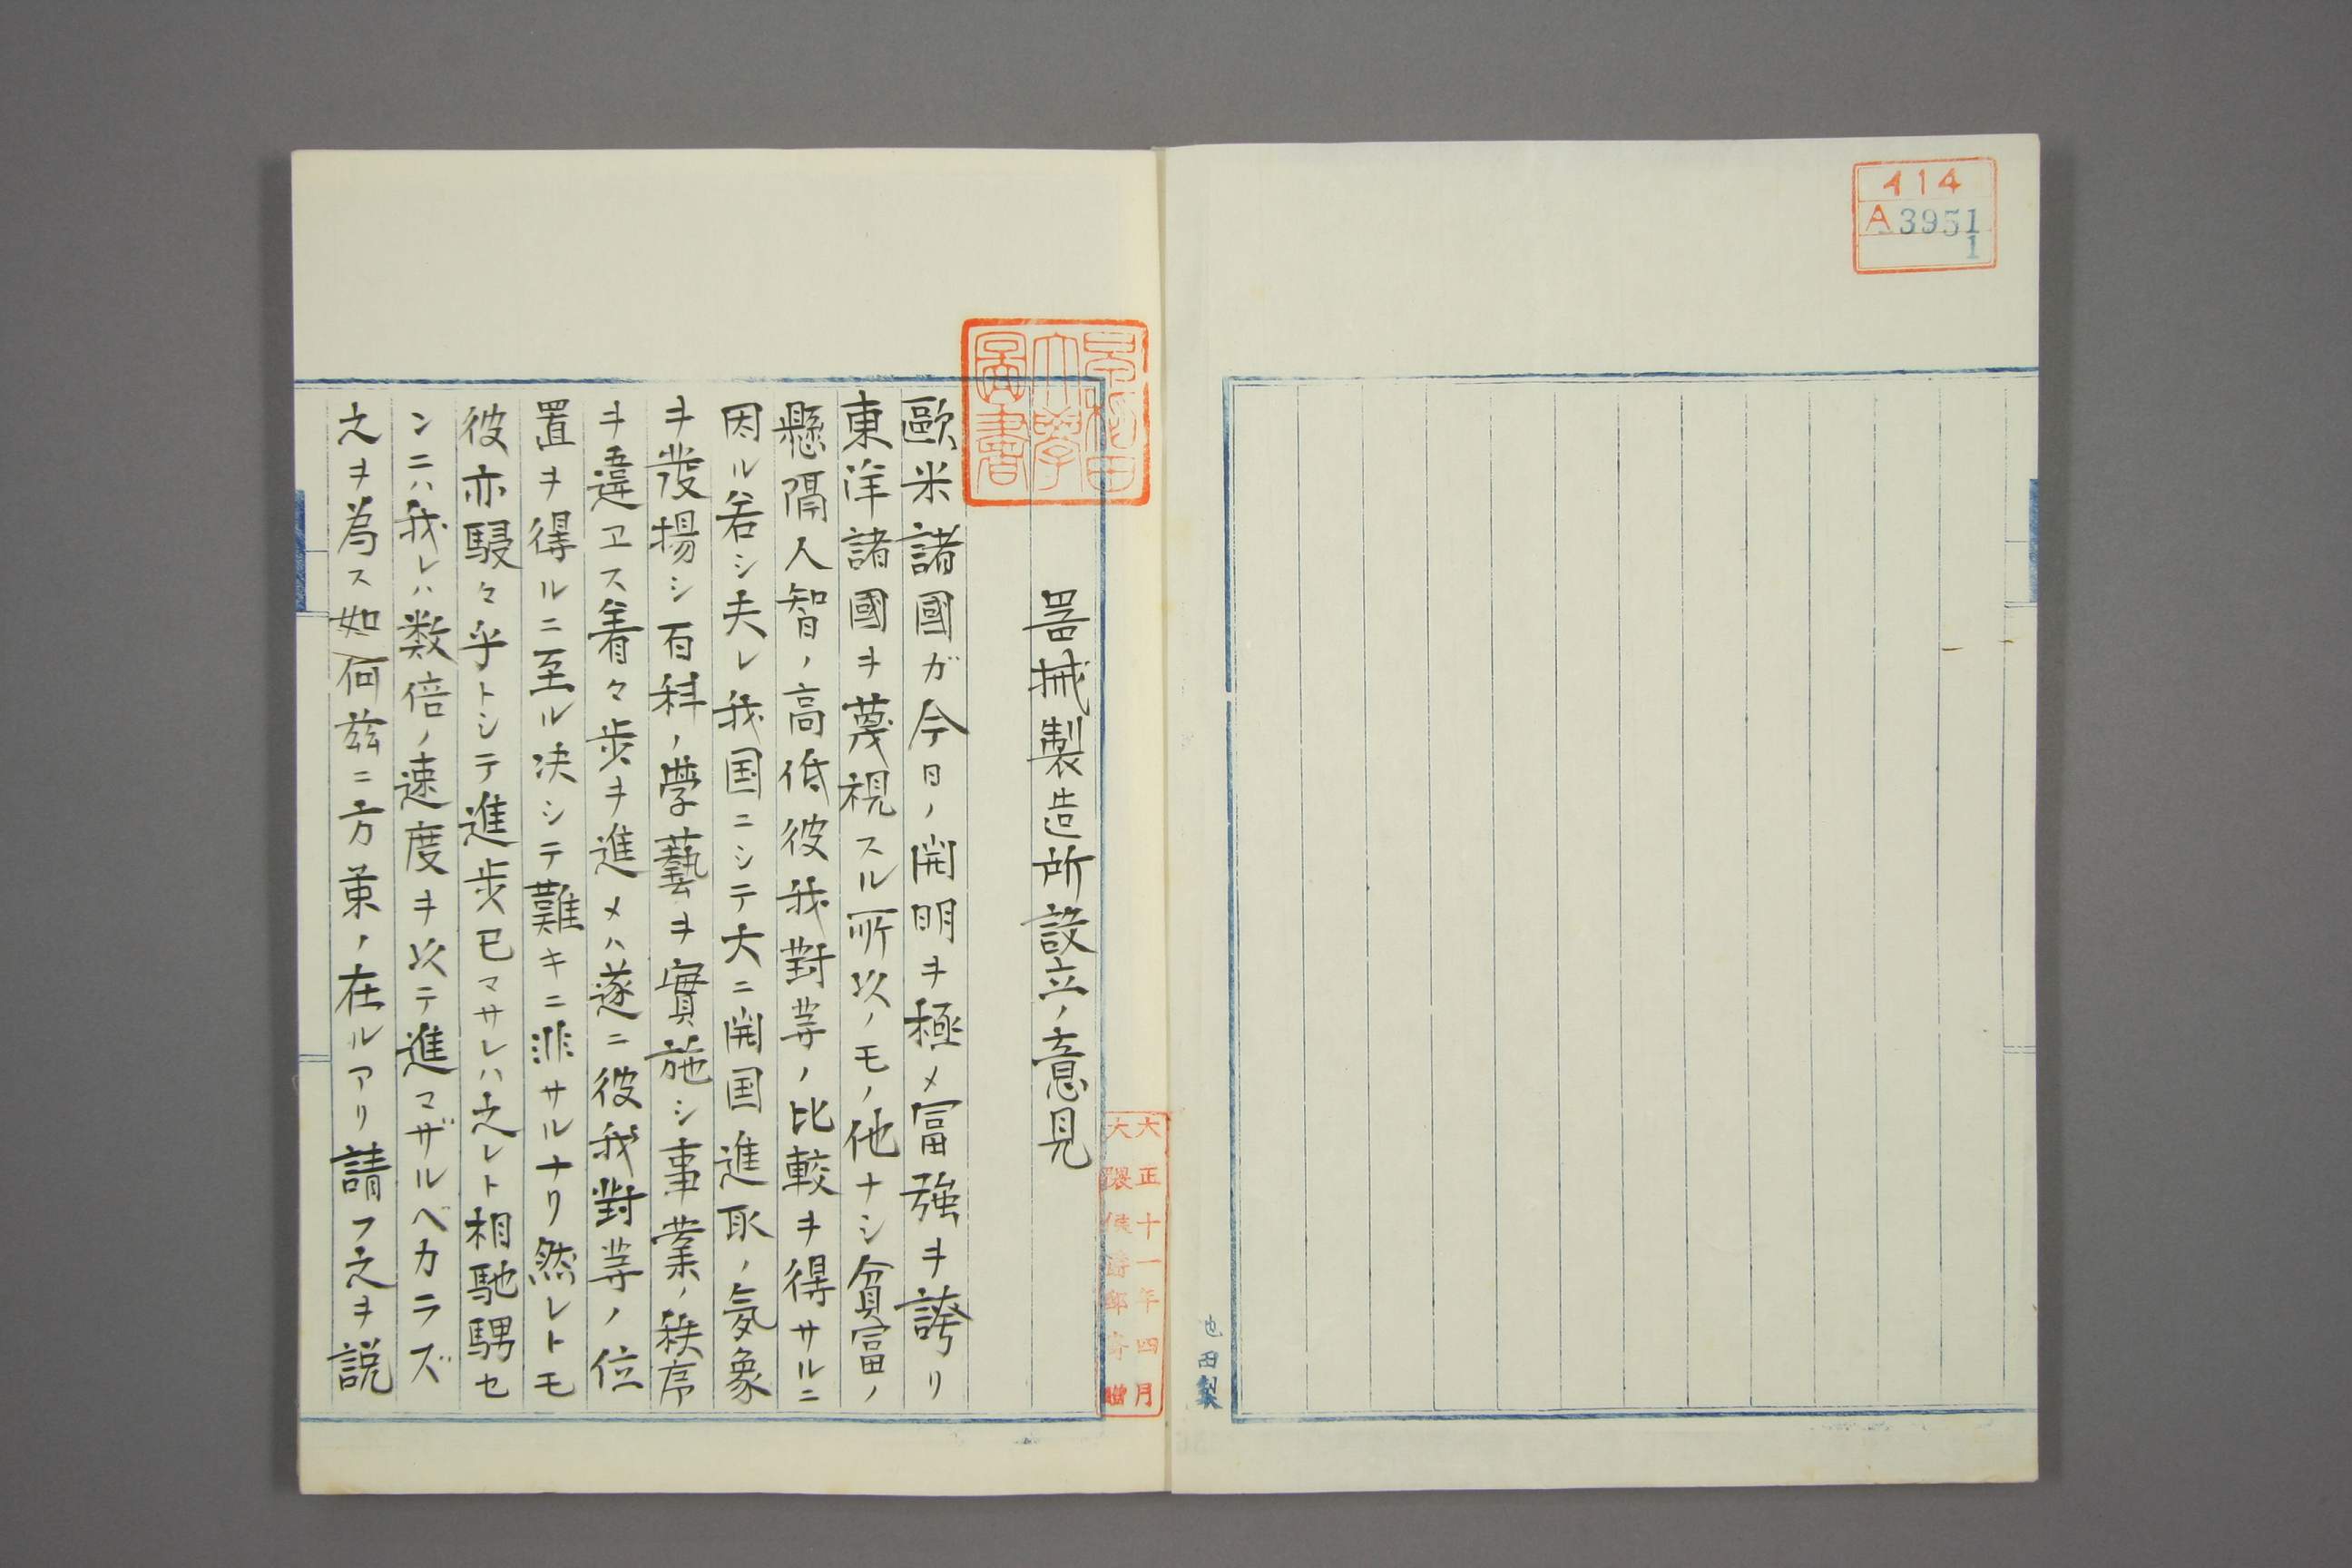 414
A3951
1
也田製
早稲田大學圖書
大正十一年四月
大隈侯爵邸寄贈
器械製造所設立ノ意見
歐米諸國ガ今日ノ開明ヲ極メ富強ヲ誇リ
東洋諸國ヲ蔑視スル所以ノモノ他ナシ貧富ノ
懸隔人智ノ高低彼我對等ノ比較ヲ得サルニ
因ル若シ夫レ我国ニシテ大ニ開国進取ノ気象
ヲ發揚シ百科ノ學藝ヲ實施シ事業ノ秩序
ヲ違ヱス着々歩ヲ進メハ遂ニ彼我對等ノ位
置ヲ得ルニ至ル决シテ難キニ非サルナリ然レトモ
彼亦駸々乎トシテ進歩已マサレハ之レト相馳騁セ
ンニハ我レハ数倍ノ速度ヲ以テ進マザルベカラズ
之ヲ為ス如何茲ニ方策ノ在ルアリ請フ之ヲ説